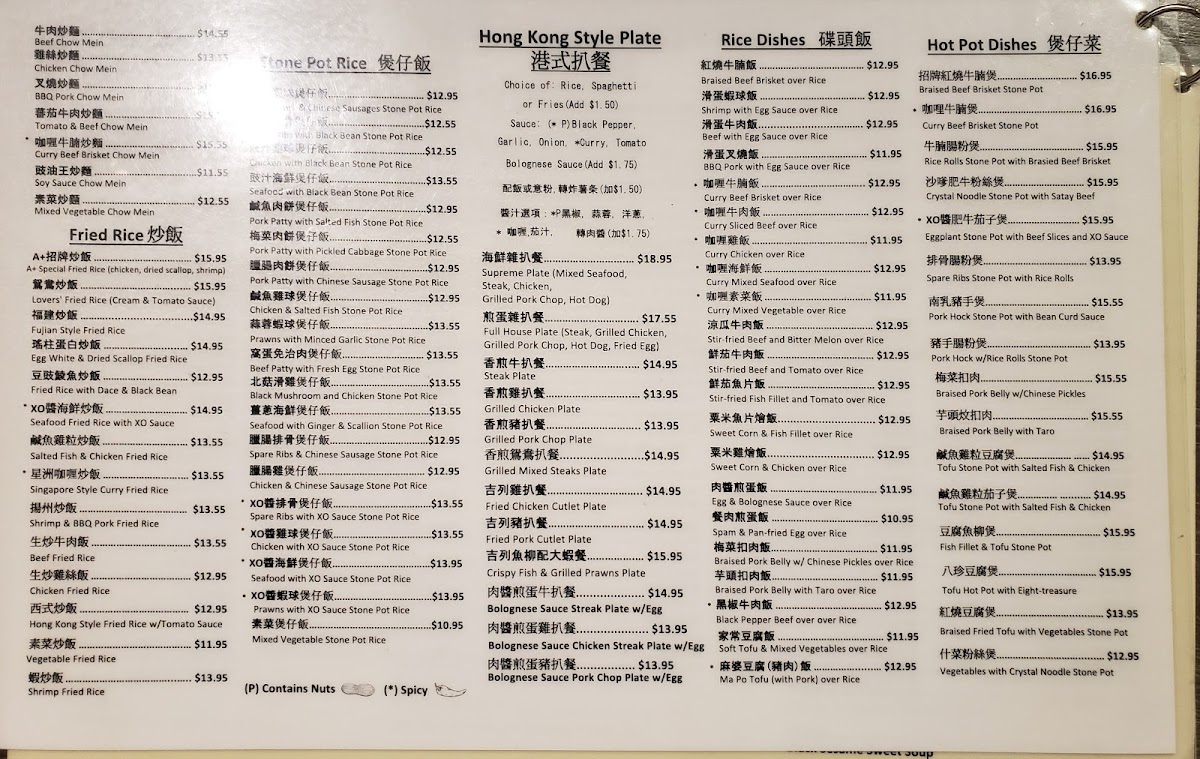 牛肉炒麵 $14.55
Beef Chow Mein
雞絲炒麵 $13.55
Chicken Chow Mein
叉燒炒麵
BBQ Pork Chow Mein
蕃茄牛肉炒麵
Tomato & Beef Chow Mein
* 咖喱牛腩炒麵 $15.55
Curry Beef Brisket Chow Mein
豉油王炒麵 $11.55
Soy Sauce Chow Mein
素菜炒麵 $12.55
Mixed Vegetable Chow Mein
Fried Rice 炒飯
A+招牌炒飯 $15.95
A+ Special Fried Rice (chicken, dried scallop, shrimp)
鴛鴦炒飯 $15.95
Lovers' Fried Rice (Cream & Tomato Sauce)
福建炒飯 $14.95
Fujian Style Fried Rice
瑤柱蛋白炒飯 $14.95
Egg White & Dried Scallop Fried Rice
豆豉鯪魚炒飯 $12.95
Fried Rice with Dace & Black Bean
* XO醬海鮮炒飯 $14.95
Seafood Fried Rice with XO Sauce
鹹魚雞粒炒飯 $13.55
Salted Fish & Chicken Fried Rice
* 星洲咖喱炒飯 $13.55
Singapore Style Curry Fried Rice
揚州炒飯 $13.55
Shrimp & BBQ Pork Fried Rice
生炒牛肉飯 $13.55
Beef Fried Rice
生炒雞絲飯 $12.95
Chicken Fried Rice
西式炒飯 $12.95
Hong Kong Style Fried Rice w/Tomato Sauce
素菜炒飯 $11.95
Vegetable Fried Rice
蝦炒飯 $13.95
Shrimp Fried Rice
Stone Pot Rice 煲仔飯
煲仔飯 $12.95
& Chinese Sausages Stone Pot Rice
煲仔飯 $12.55
Black Bean Stone Pot Rice
煲仔飯 $12.55
Chicken with Black Bean Stone Pot Rice
豉汁海鮮煲仔飯 $13.55
Seafood with Black Bean Stone Pot Rice
鹹魚肉餅煲仔飯 $12.95
Pork Patty with Salted Fish Stone Pot Rice
梅菜肉餅煲仔飯 $12.55
Pork Patty with Pickled Cabbage Stone Pot Rice
臘腸肉餅煲仔飯 $12.95
Pork Patty with Chinese Sausage Stone Pot Rice
鹹魚雞球煲仔飯 $12.95
Chicken & Salted Fish Stone Pot Rice
蒜蓉蝦球煲仔飯 $13.55
Prawns with Minced Garlic Stone Pot Rice
窩蛋免治肉煲仔飯 $13.55
Beef Patty with Fresh Egg Stone Pot Rice
北菇滑雞煲仔飯 $13.55
Black Mushroom and Chicken Stone Pot Rice
薑蔥海鮮煲仔飯 $13.55
Seafood with Ginger & Scallion Stone Pot Rice
臘腸排骨煲仔飯 $12.95
Spare Ribs & Chinese Sausage Stone Pot Rice
臘腸雞煲仔飯 $12.95
Chicken & Chinese Sausage Stone Pot Rice
* XO醬排骨煲仔飯 $13.55
Spare Ribs with XO Sauce Stone Pot Rice
* XO醬雞球煲仔飯 $13.55
Chicken with XO Sauce Stone Pot Rice
* XO醬海鮮煲仔飯 $13.95
Seafood with XO Sauce Stone Pot Rice
* XO醬蝦球煲仔飯 $13.95
Prawns with XO Sauce Stone Pot Rice
素菜煲仔飯 $10.95
Mixed Vegetable Stone Pot Rice
(P) Contains Nuts (*) Spicy
Hong Kong Style Plate
港式扒餐
Choice of: Rice, Spaghetti
or Fries(Add $1.50)
Sauce: (* P)Black Pepper,
Garlic, Onion, *Curry, Tomato
Bolognese Sauce(Add $1.75)
配飯或意粉,轉炸薯条(加$1.50)
醬汁選項：*P黑椒, 蒜蓉, 洋蔥,
* 咖喱,茄汁, 轉肉醬(加$1.75)
海鮮雜扒餐 $18.95
Supreme Plate (Mixed Seafood,
Steak, Chicken,
Grilled Pork Chop, Hot Dog)
煎蛋雜扒餐 $17.55
Full House Plate (Steak, Grilled Chicken,
Grilled Pork Chop, Hot Dog, Fried Egg)
香煎牛扒餐 $14.95
Steak Plate
香煎雞扒餐 $13.95
Grilled Chicken Plate
香煎豬扒餐 $13.95
Grilled Pork Chop Plate
香煎鴛鴦扒餐 $14.95
Grilled Mixed Steaks Plate
吉列雞扒餐 $14.95
Fried Chicken Cutlet Plate
吉列豬扒餐 $14.95
Fried Pork Cutlet Plate
吉列魚柳配大蝦餐 $15.95
Crispy Fish & Grilled Prawns Plate
肉醬煎蛋牛扒餐 $14.95
Bolognese Sauce Streak Plate w/Egg
肉醬煎蛋雞扒餐 $13.95
Bolognese Sauce Chicken Streak Plate w/Egg
肉醬煎蛋豬扒餐 $13.95
Bolognese Sauce Pork Chop Plate w/Egg
Rice Dishes 碟頭飯
紅燒牛腩飯 $12.95
Braised Beef Brisket over Rice
滑蛋蝦球飯 $12.95
Shrimp with Egg Sauce over Rice
滑蛋牛肉飯 $12.95
Beef with Egg Sauce over Rice
滑蛋叉燒飯 $11.95
BBQ Pork with Egg Sauce over Rice
* 咖喱牛腩飯 $12.95
Curry Beef Brisket over Rice
* 咖喱牛肉飯 $12.95
Curry Sliced Beef over Rice
* 咖喱雞飯 $11.95
Curry Chicken over Rice
* 咖喱海鮮飯 $12.95
Curry Mixed Seafood over Rice
* 咖喱素菜飯 $11.95
Curry Mixed Vegetable over Rice
涼瓜牛肉飯 $12.95
Stir-fried Beef and Bitter Melon over Rice
鮮茄牛肉飯 $12.95
Stir-fried Beef and Tomato over Rice
鮮茄魚片飯 $12.95
Stir-fried Fish Fillet and Tomato over Rice
粟米魚片燴飯 $12.95
Sweet Corn & Fish Fillet over Rice
粟米雞燴飯 $12.95
Sweet Corn & Chicken over Rice
肉醬煎蛋飯 $11.95
Egg & Bolognese Sauce over Rice
餐肉煎蛋飯 $10.95
Spam & Pan-fried Egg over Rice
梅菜扣肉飯 $11.95
Braised Pork Belly w/ Chinese Pickles over Rice
芋頭扣肉飯 $11.95
Braised Pork Belly with Taro over Rice
* 黑椒牛肉飯 $12.95
Black Pepper Beef over Rice
家常豆腐飯 $11.95
Soft Tofu & Mixed Vegetables over Rice
* 麻婆豆腐(豬肉)飯 $12.95
Ma Po Tofu (with Pork) over Rice
Hot Pot Dishes 煲仔菜
招牌紅燒牛腩煲 $16.95
Braised Beef Brisket Stone Pot
* 咖喱牛腩煲 $16.95
Curry Beef Brisket Stone Pot
牛腩腸粉煲 $15.95
Rice Rolls Stone Pot with Brasied Beef Brisket
沙爹肥牛粉絲煲 $15.95
Crystal Noodle Stone Pot with Satay Beef
* XO醬肥牛茄子煲 $15.95
Eggplant Stone Pot with Beef Slices and XO Sauce
排骨腸粉煲 $13.95
Spare Ribs Stone Pot with Rice Rolls
南乳豬手煲 $15.55
Pork Hock Stone Pot with Bean Curd Sauce
豬手腸粉煲 $13.95
Pork Hock w/Rice Rolls Stone Pot
梅菜扣肉 $15.55
Braised Pork Belly w/Chinese Pickles
芋頭炆扣肉 $15.55
Braised Pork Belly with Taro
鹹魚雞粒豆腐煲 $14.95
Tofu Stone Pot with Salted Fish & Chicken
鹹魚雞粒茄子煲 $14.95
Tofu Stone Pot with Salted Fish & Chicken
豆腐魚柳煲 $15.95
Fish Fillet & Tofu Stone Pot
八珍豆腐煲 $15.95
Tofu Hot Pot with Eight-treasure
紅燒豆腐煲 $13.95
Braised Fried Tofu with Vegetables Stone Pot
什菜粉絲煲 $12.95
Vegetables with Crystal Noodle Stone Pot
Sesame Sweet Soup